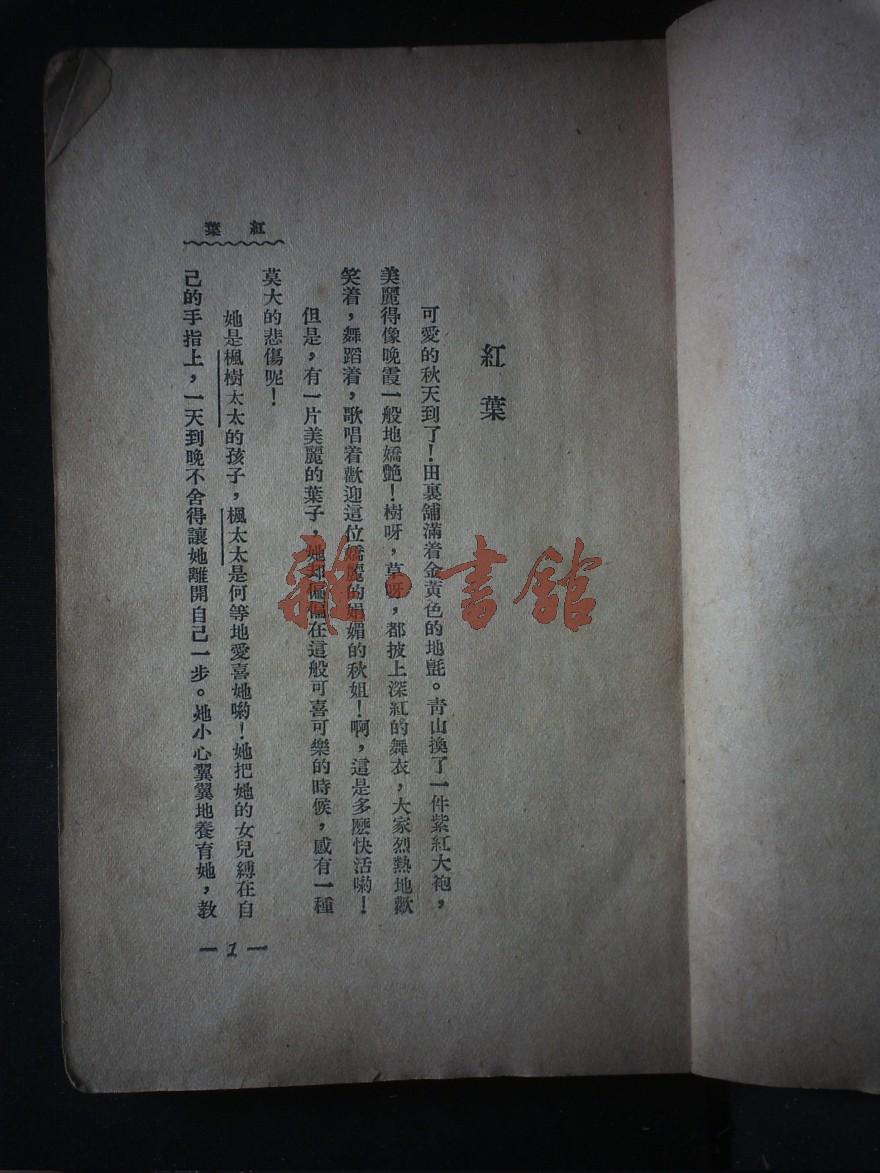 紅葉
紅葉
可愛的秋天到了！田裏舖滿着金黃色的地氈。靑山換了一件紫紅大袍，
美麗得像晚霞一般地嬌艷！樹呀，草呀，都披上深紅的舞衣，大家烈熱地歡
笑着，舞蹈着，歌唱着歡迎這位嬌麗的娟媚的秋姐！啊，這是多麽快活喲！
但是，有一片美麗的葉子，她却偏偏在這般可喜可樂的時候，感有一種
莫大的悲傷呢！
她是楓樹太太的孩子，楓太太是何等地愛喜她喲！她把她的女兒縛在自
己的手指上，一天到晚不舍得讓她離開自己一步。她小心翼翼地養育她，教
— 1 —
雜·書館